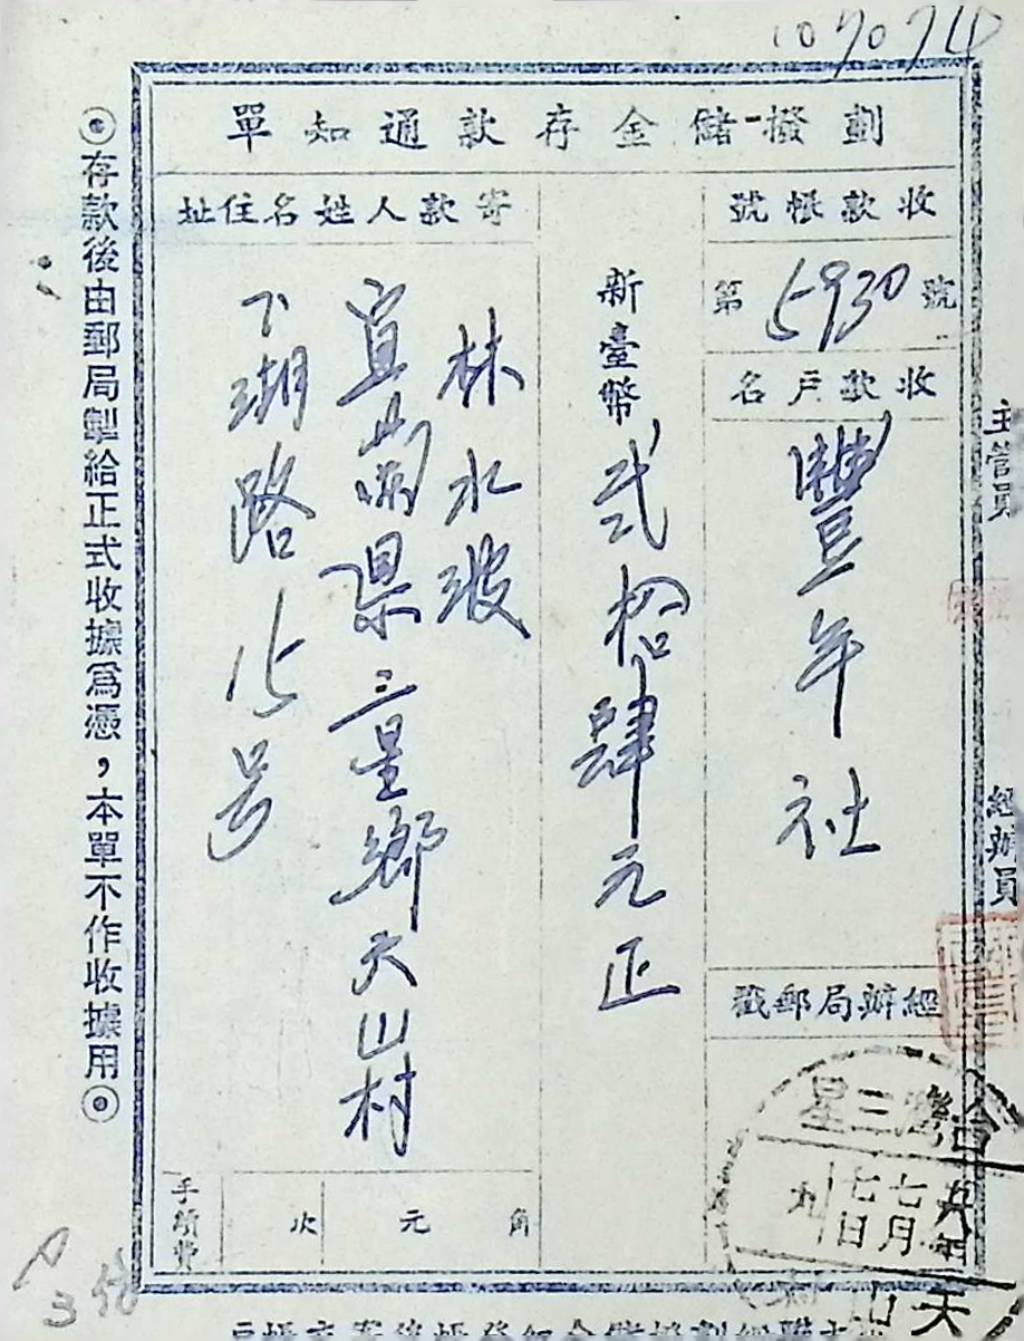 107074
劃撥儲金存款通知單
收款帳號
第5930號
收款戶名
豐年社
經辦局郵戳
新臺幣貳拾肆元正
寄款人姓名住址
林水波
宜蘭县三星鄉大山村
下湖路15号
手續費
角
元
次
◎存款後由郵局製給正式收據為憑,本單不作收據用◎
主管員
經辦員
台灣三星
五八年
七月
七日
九
天山